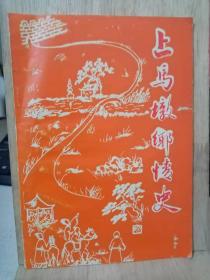 上马墩鄉情史